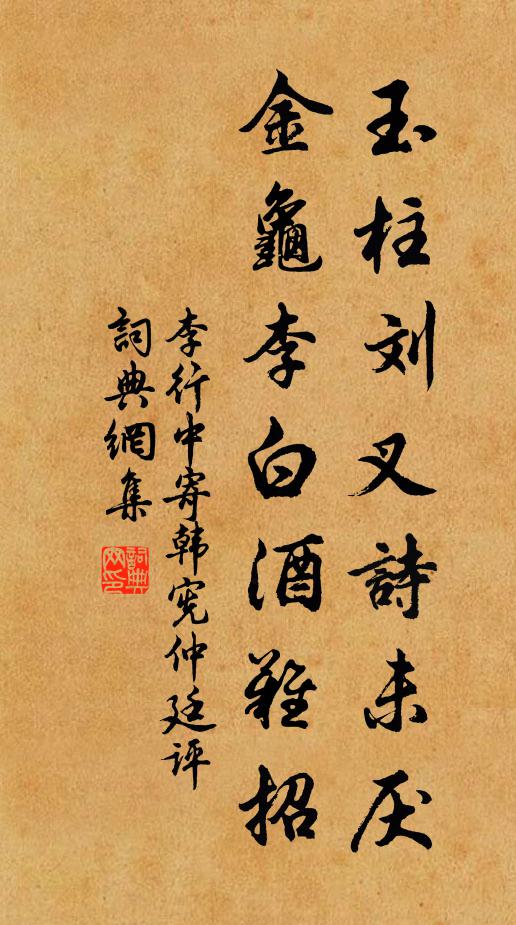 玉柱刘叉詩未厌
金龜李白酒難招
李行中寄韩宪仲廷评
詞典網集
詞典网印